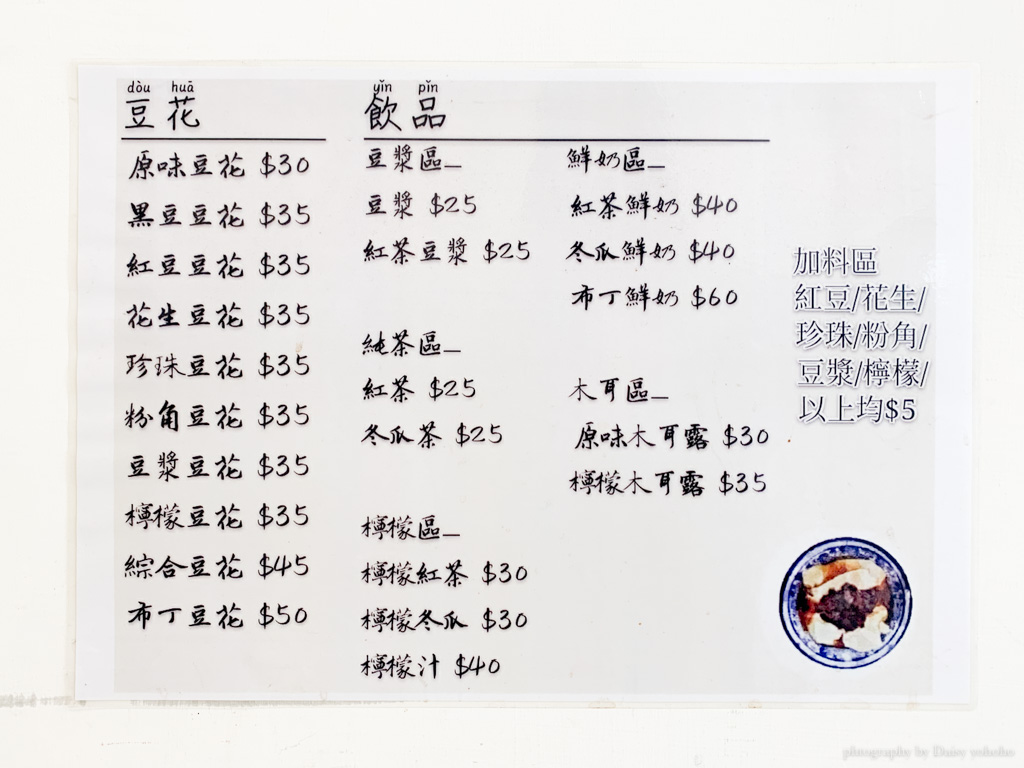 dòu huā
豆花
原味豆花 $30
黑豆豆花 $35
紅豆豆花 $35
花生豆花 $35
珍珠豆花 $35
粉角豆花 $35
豆漿豆花 $35
檸檬豆花 $35
綜合豆花 $45
布丁豆花 $50
yǐn pǐn
飲品
豆漿區_
豆漿 $25
紅茶豆漿 $25
純茶區_
紅茶 $25
冬瓜茶 $25
檸檬區_
檸檬紅茶 $30
檸檬冬瓜 $30
檸檬汁 $40
鮮奶區_
紅茶鮮奶 $40
冬瓜鮮奶 $40
布丁鮮奶 $60
木耳區_
原味木耳露 $30
檸檬木耳露 $35
加料區
紅豆/花生/
珍珠/粉角/
豆漿/檸檬/
以上均$5
photography by Daisy yohoho